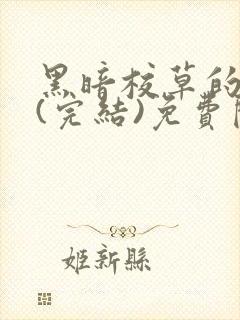 黑暗校草的
(完結)免費
姬新縣